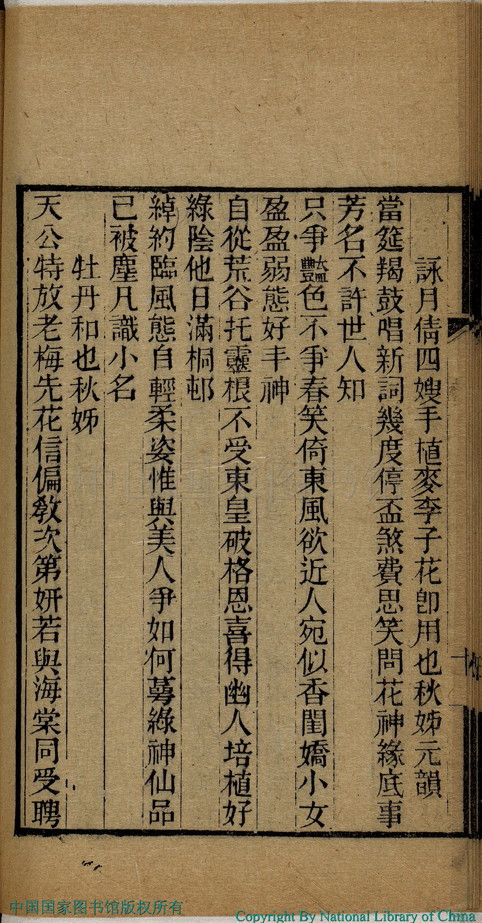 詠月倩四嫂手植麥李子花卽用也秋姊元韻
當筵羯鼓唱新詞幾度停盃煞費思笑問花神緣底事
芳名不許世人知
只爭豔色不爭春笑倚東風欲近人宛似香閨嬌小女
盈盈弱態好丰神
自從荒谷托靈根不受東皇破格恩喜得幽人培植好
綠陰他日滿桐邨
綽約臨風態自輕柔姿惟與美人爭如何萼綠神仙品
已被塵凡識小名
牡丹和也秋姊
天公特放老梅先花信偏敎次第妍若與海棠同受聘
中国国家图书馆版权所有
Copyright By National Library of China